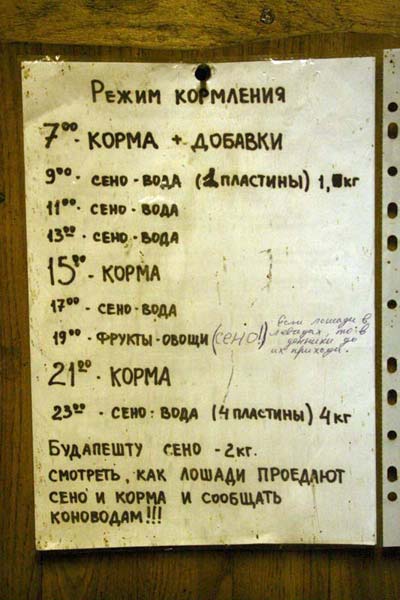 Режим кормления
7⁰⁰- корма + добавки
9⁰⁰- сено-вода (2 пластины) 1, кг
11⁰⁰- сено-вода
13⁰⁰- сено-вода
15⁰⁰- корма
17⁰⁰- сено-вода
19⁰⁰- фрукты-овощи (сено!)
если лошади в
левадах, то в
денники до
их прихода.
21⁰⁰- корма
23⁰⁰- сено-вода (4 пластины) 4 кг
Будапешту сено - 2кг.
смотреть, как лошади проедают
сено и корма и сообщать
коноводам!!!